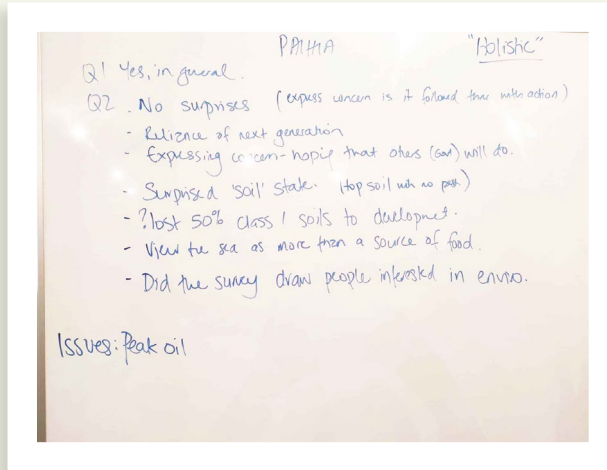 PAIHIA "Holistic"
Q1 Yes, in general.
Q2. No surprises (express concern is it followed with action)
- Reliance of next generation
- Expressing concern - hoping that others (Gov) will do.
- Surprised 'soil' state. (top soil with no)
- ?lost 50% class 1 soils to development.
- View the sea as more than a source of food.
- Did the survey draw people interested in enviro.
Issues: Peak oil